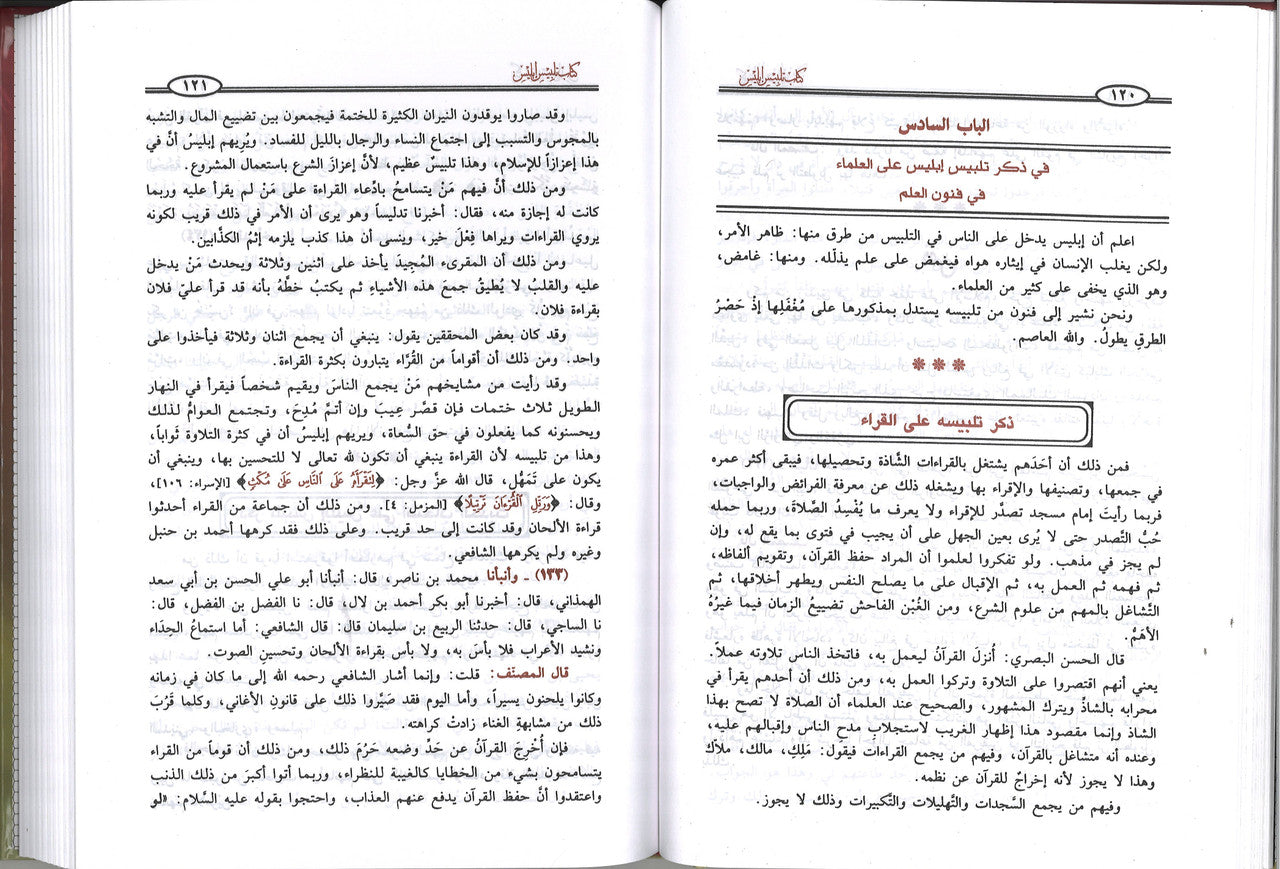 كتاب تلبيس إبليس
١٢٠
الباب السادس
في ذكر تلبيس إبليس على العلماء
في فنون العلم
اعلم أن إبليس يدخل على الناس في التلبيس من طرق منها: ظاهر الأمر،
ولكن يغلب الإنسان في إيثاره هواه فيغمض على علم يذلّله. ومنها: غامض،
وهو الذي يخفى على كثير من العلماء.
ونحن نشير إلى فنون من تلبيسه يستدل بمذكورها على مُغْفَلِها إذْ حَصْرُ
الطرقِ يطولُ. والله العاصم.
* * *
ذكر تلبيسه على القراء
فمن ذلك أن أحَدَهم يشتغل بالقراءات الشَّاذة وتحصيلها، فيبقى أكثر عمره
في جمعها، وتصنيفها والإقراء بها ويشغله ذلك عن معرفة الفرائض والواجبات،
فربما رأيتَ إمام مسجد تصدَّر للإقراء ولا يعرف ما يُفْسِد الصَّلاةَ، وربما حمله
حُبُّ التَّصدر حتى لا يُرى بعين الجهل على أن يجيب في فتوى بما يقع له، وإن
لم يجز في مذهب. ولو تفكروا لعلموا أن المراد حفظ القرآن، وتقويم ألفاظه،
ثم فهمه ثم العمل به، ثم الإقبال على ما يصلح النفس ويطهر أخلاقها، ثم
التَّشاغل بالمهم من علوم الشرع، ومن الغُبْن الفاحش تضييعُ الزمان فيما غيرُهُ
الأهَمُّ.
قال الحسن البصري: أُنزلَ القرآنُ ليعمل به، فاتخذ الناس تلاوته عملاً.
يعني أنهم اقتصروا على التلاوة وتركوا العمل به، ومن ذلك أن أحدهم يقرأ في
محرابه بالشاذِّ ويترك المشهور، والصحيح عند العلماء أن الصلاة لا تصح بهذا
الشاذ وإنما مقصود هذا إظهار الغريب لاستجلابِ مدحِ الناس وإقبالهم عليه،
وعنده أنه متشاغل بالقرآن، وفيهم من يجمع القراءات فيقول: مَلِكِ، مالك، ملاّك
وهذا لا يجوز لأنه إخراجٌ للقرآن عن نظمه.
وفيهم من يجمع السَّجدات والتَّهليلات والتَّكبيرات وذلك لا يجوز.
كتاب تلبيس إبليس
١٢١
وقد صاروا يوقدون النيران الكثيرة للختمة فيجمعون بين تضييع المال والتشبه
بالمجوس والتسبب إلى اجتماع النساء والرجال بالليل للفساد. ويُريهم إبليسُ أنَّ في
هذا إعزازاً للإسلام، وهذا تلبيسٌ عظيم، لأنَّ إعزازَ الشرع باستعمال المشروع.
ومن ذلك أنَّ فيهم مَنْ يتسامحُ بادِّعاء القراءة على مَنْ لم يقرأ عليه وربما
كانت له إجازة منه، فقال: أخبرنا تدليساً وهو يرى أن الأمر في ذلك قريب لكونه
يروي القراءات ويراها فِعْلَ خير، وينسى أن هذا كذب يلزمه إثمُ الكذَّابين.
ومن ذلك أن المقرىء المُجِيدَ يأخذ على اثنين وثلاثة ويحدث مَنْ يدخل
عليه والقلبُ لا يُطيقُ جمعَ هذه الأشياءِ ثم يكتبُ خطَّهُ بأنه قد قرأ عليّ فلان
بقراءة فلان.
وقد كان بعض المحققين يقول: ينبغي أن يجمع اثنان وثلاثة فيأخذوا على
واحد. ومن ذلك أن أقواماً من القُرَّاء يتبارون بكثرة القراءة.
وقد رأيت من مشايخهم مَنْ يجمع الناسَ ويقيم شخصاً فيقرأ في النهار
الطويل ثلاث ختمات فإن قصَّر عِيبَ وإن أتمَّ مُدِحَ، وتجتمع العوامُّ لذلك
ويحسنونه كما يفعلون في حق السُّعاة، ويريهم إبليسُ أن في كثرة التلاوة ثَواباً،
وهذا من تلبيسه لأن القراءة ينبغي أن تكون لله تعالى لا للتحسين بها، وينبغي أن
يكون على تَمَهُّل، قال الله عزَّ وجل: ﴿لِتَقْرَأَهُ عَلَى النَّاسِ عَلَى مُكْثٍ﴾ [الإسراء: ١٠٦]،
وقال: ﴿وَرَتِّلِ الْقُرْءَانَ تَرْتِيلًا﴾ [المزمل: ٤]. ومن ذلك أن جماعة من القراء أحدثوا
قراءة الألحان وقد كانت إلى حد قريب. وعلى ذلك فقد كرهها أحمد بن حنبل
وغيره ولم يكرهها الشافعي.
(١٣٣) ـ وأنبأنا محمد بن ناصر، قال: أنبأنا أبو علي الحسن بن أبي سعد
الهمذاني، قال: أخبرنا أبو بكر أحمد بن لال، قال: نا الفضل بن الفضل، قال:
نا الساجي، قال: حدثنا الربيع بن سليمان قال: قال الشافعي: أما استماعُ الحِدَاء
ونشيد الأعراب فلا بأسَ به، ولا بأس بقراءة الألحان وتحسينِ الصوت.
قال المصنّف: قلت: وإنما أشار الشافعي رحمه الله إلى ما كان في زمانه
وكانوا يلحنون يسيراً، وأما اليوم فقد صَيَّروا ذلك على قانونِ الأغاني، وكلما قَرُبَ
ذلك من مشابهةِ الغناء زادتْ كراهته.
فإن أُخْرِجَ القرآنُ عن حَدِّ وضعه حَرُمَ ذلك، ومن ذلك أن قوماً من القراء
يتسامحون بشيء من الخطايا كالغيبة للنظراء، وربما أتوا أكبرَ من ذلك الذنب
واعتقدوا أنَّ حفظ القرآن يدفع عنهم العذاب، واحتجوا بقوله عليه السَّلام: «لو